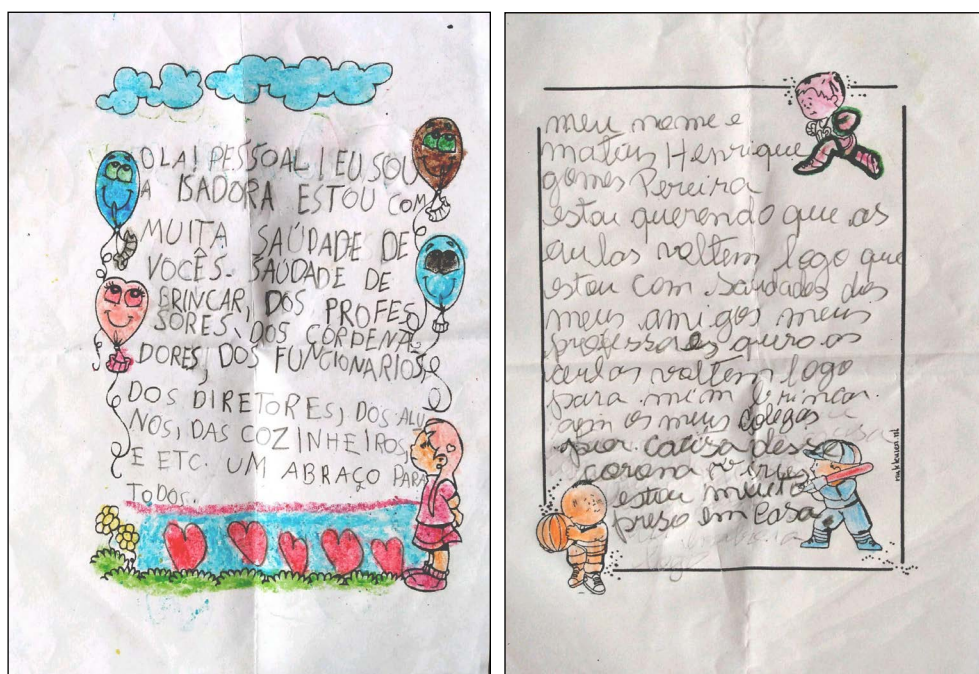 OLA! PESSOAL! EU SOU
A ISADORA ESTOU COM
MUITA SAÚDADE DE
VOCÊS. SAÚDADE DE
BRINCAR, DOS PROFES
SORES, DOS CORDENA
DORES, DOS FUNCIONARIOS,
DOS DIRETORES, DOS ALU
NOS, DAS COZINHEIROS,
E ETC. UM ABRAÇO PARA
TODOS.
meu nome e
Henrique
gomes Pereira
estou querendo que as
aulas voltem logo que
estou com saudades dos
meus amigos meus
professores quero as
aulas voltem logo
para mim brincar
com os meus colegas
por causa dess
corona virus
estou muito
preso em casa